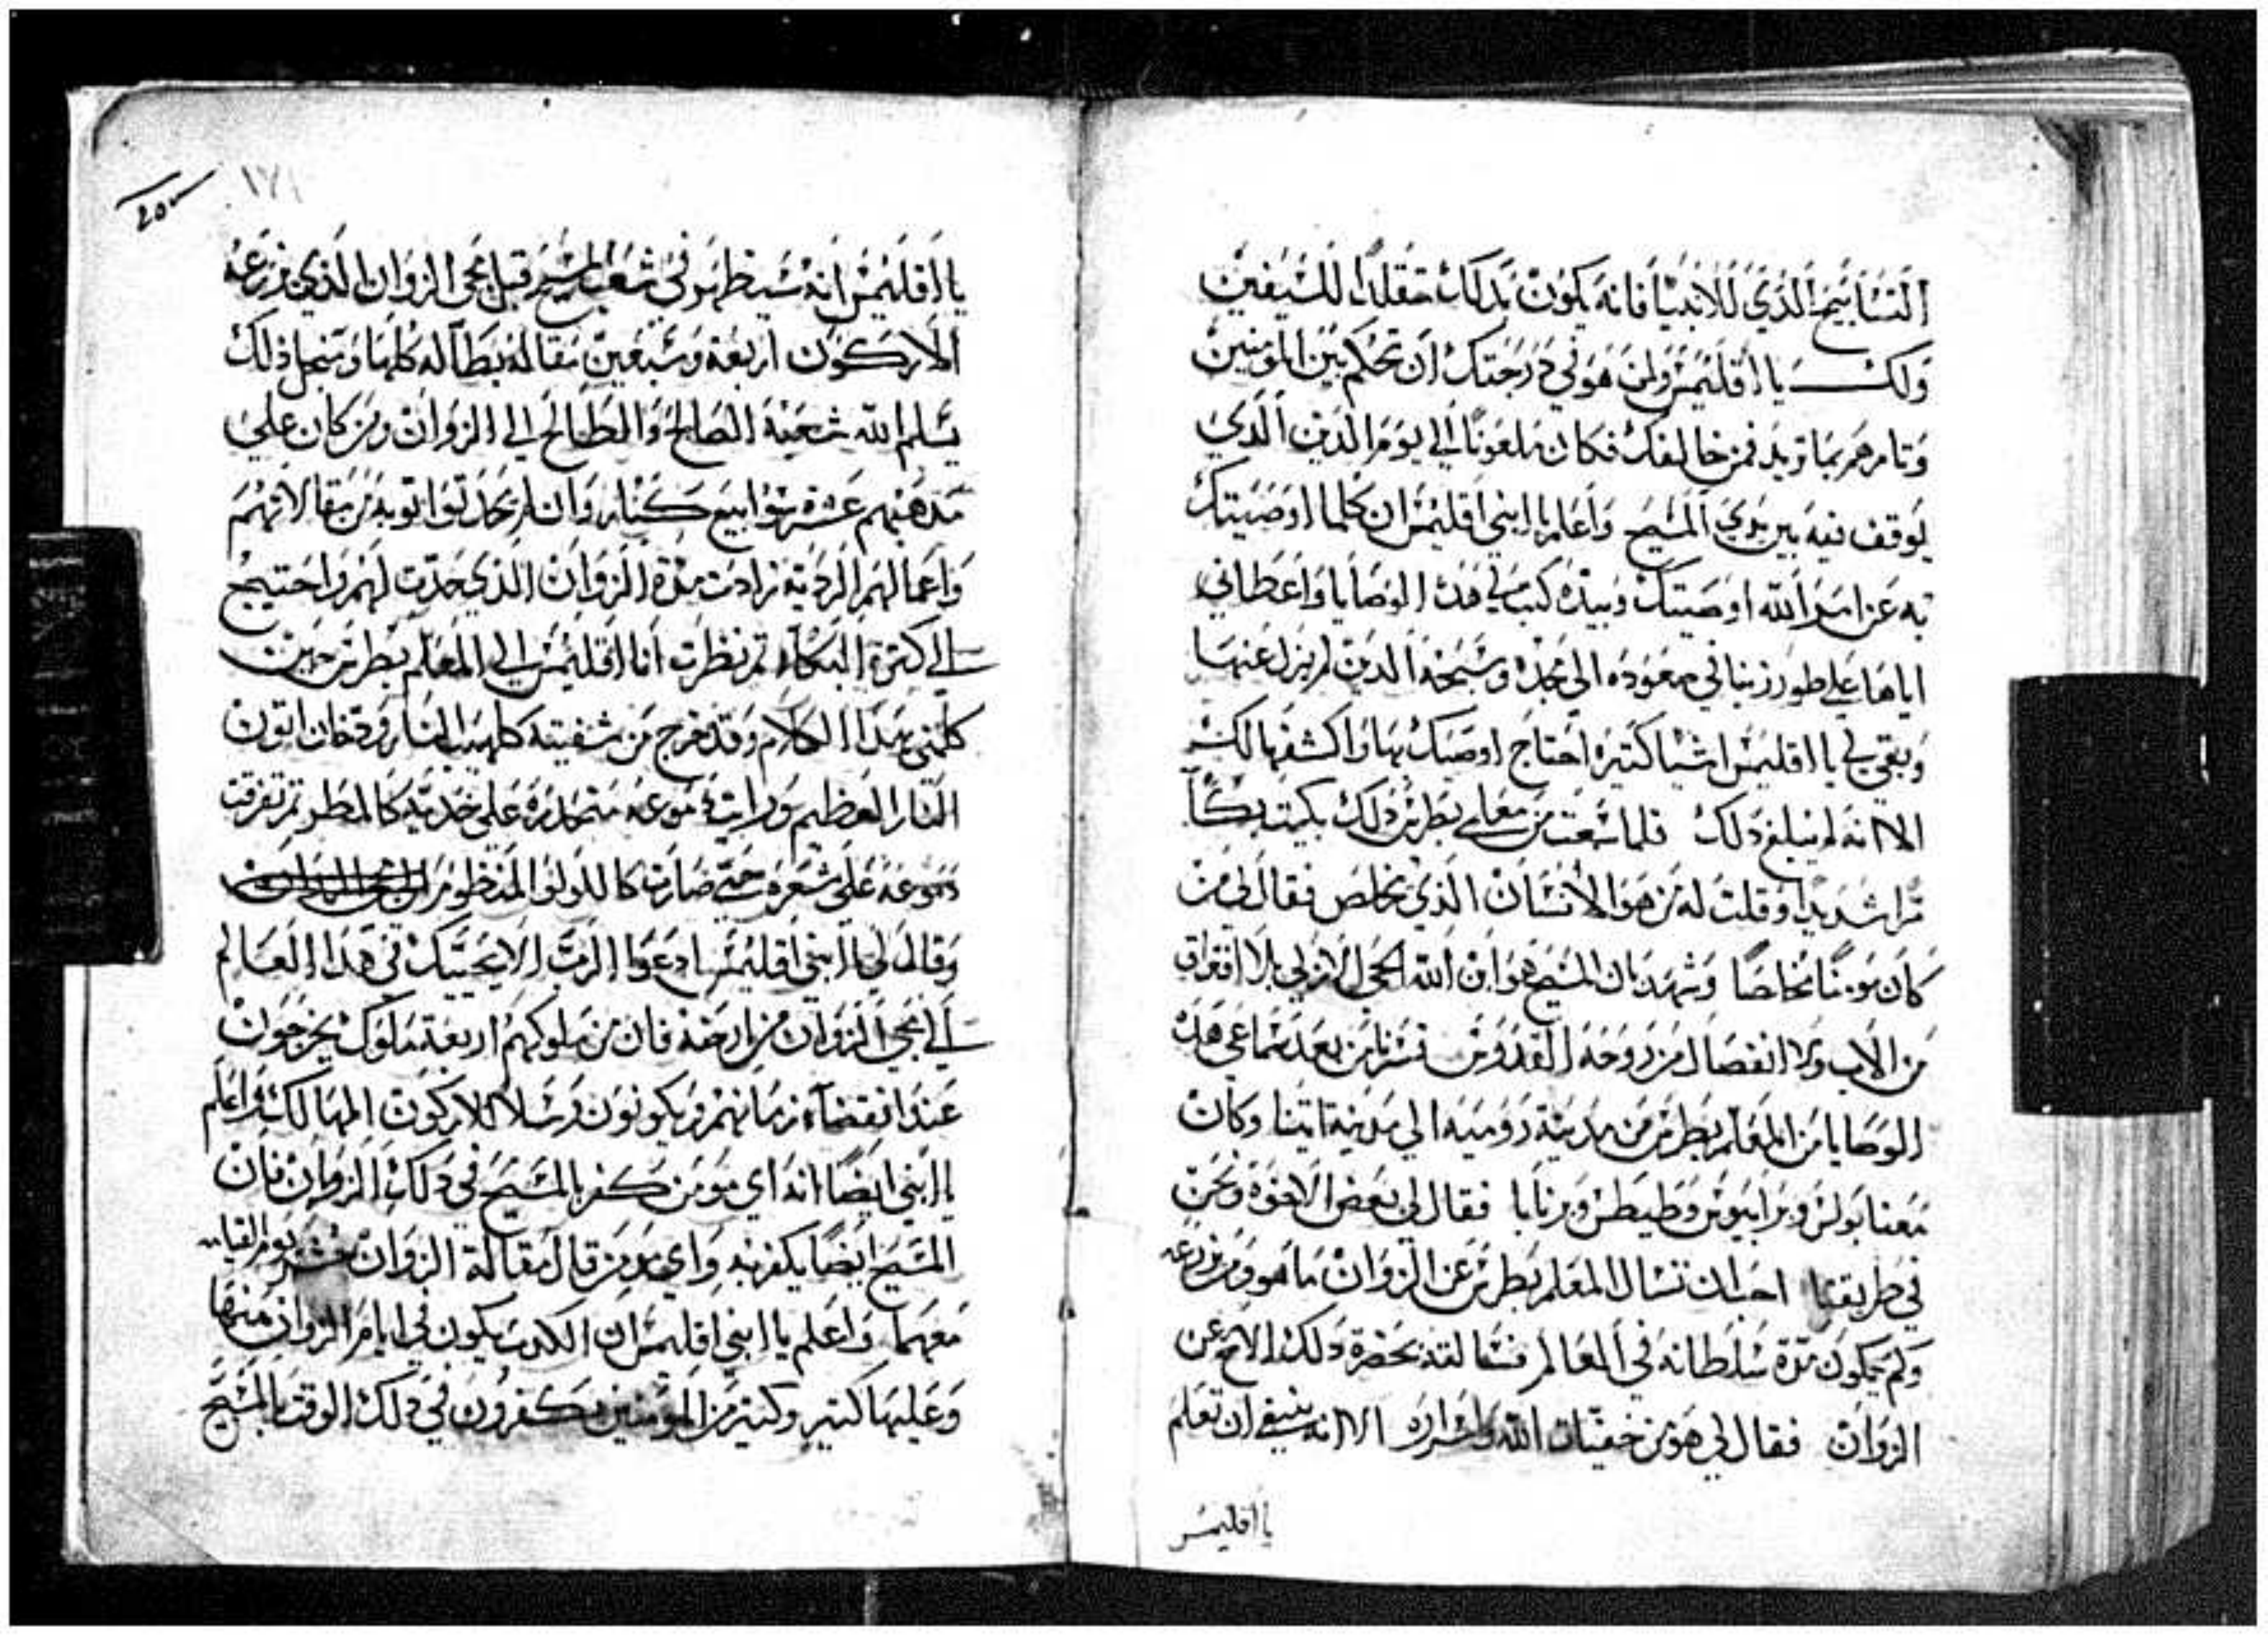 التسابيح الذي للانبيا فانه يكون بدلك متقلدا للسيفين
ولك يا اقليمس ولمن هو في درجتك ان تحكم بين المومنين
وتامرهم بما تريد فمن خالفك فكان ملعونا الي يوم الدين الذي
يوقف فيه بين يدي المسيح واعلم يا ابني اقليمس ان كلما اوصيتك
به عن امر الله اوصيتك وبيده كتب لي هذه الوصايا واعطاني
اياها علي طور زيتا في صعوده الي مجده وسبحة الدين لم يزل عنها
وبقي لي يا اقليمس اشيا كتيرة احتاج اوصيك بها واكشفها لك
الا انه لم يبلغ دلك فلما سمعت من معلمي بطرس دلك بكيت بكآ
مرا شديدا وقلت له من هو الانسان الذي يخلص فقال لي من
كان مومنا مخلصا وشهد بان المسيح هو ابن الله الحي الازلي بلا افتراق
من الاب ولا انفصال من روحه القدوس فسرنا من بعد سماعي هذه
الوصايا من المعلم بطرس من مدينة رومية الي مدينة اتينا وكان
معنا بولس وبرابيوس وطيطس وبرنابا فقال لي بعض الاخوة ونحن
في طريقنا احب ان تسال المعلم بطرس عن الزوان ما هو ومن زرعه
ولم يكون مدة سلطانه في العالم فسالته بحضرة دلك الاخ عن
الزوان فقال لي هو من خفيات الله واسراره الا انه ينبغي ان تعلم
يا اقليمس
٢٥٣
١٧١
يا اقليمس انه سيظهر في شعب المسيح قبل مجي الزوان الذي زرعه
الاركون اربعة وسبعين مقالة بطالة كلها ومن اجل ذلك
يسلم الله شعبه الصالح والطالح الي الزوان ومن كان علي
مذهبهم عشرة سوابيع كبار وان لم يحدتوا توبة من مقالاتهم
واعمالهم الردية زادت مدة الزوان الذي حدت لهم واحتيج
الي كترة البكآء ثم نظرت انا اقليمس الي المعلم بطرس حين
كلمني بهذا الكلام وقد خرج من شفيته كلهيب النار ودخان اتون
النار العظيم ورايت دموعه متحدرة علي خديه كالمطر تم تفرقت
دموعه علي شعره حتي صارت كاللولو المنظوم
وقال لي يا ابني اقليمس ادعوا الرب الا يحييك في هذا العالم
الي مجي الزوان من ارضه فان من ملوكهم اربعة ملوك يخرجون
عند انقضآء زمانهم ويكونون رسلا للاركون المهالك واعلم
يا ابني ايضا انه اي مومن كفر بالمسيح في دلك الزمان فان
المسيح ايضا يكفر به واي مومن قال مقالة الزوان يوم القيامه
معهما واعلم يا ابني اقليمس ان الكدب يكون في ايام الزوان منها
وعليها كتير وكتير من المومنين يكفرون في دلك الوقت بالمسيح